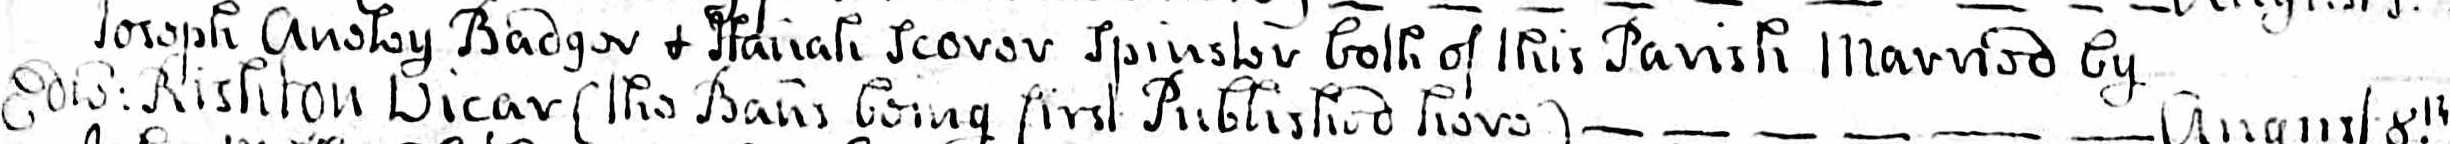 Joseph Ansley Badger & Hanah Scorer Spinster both of this Parish Married by
Edw: Rishton Vicar (the Bans being first Published here) — — — — — — August 8th